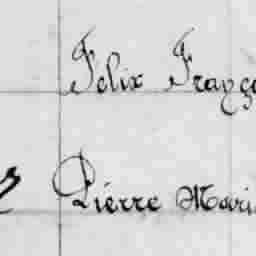 Félix Franço
Pierre Mari